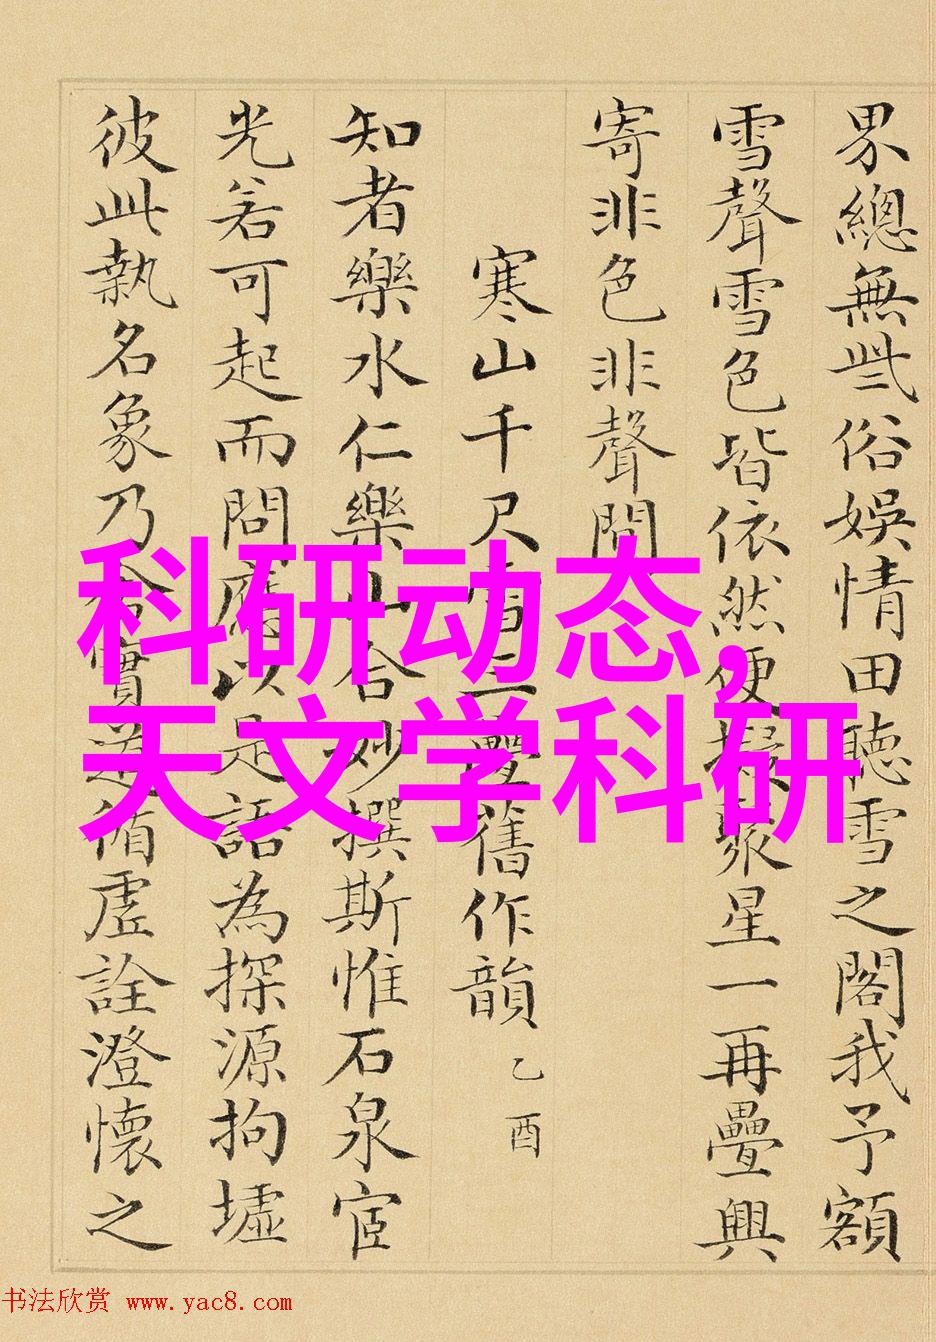 界總無塵俗娛情田聴雪之閣我予額
雪聲雪色皆依然便擬聚星一再疊興
寄非色非聲間
寒山千尺雪三疊舊作韻 乙酉
知者樂水仁樂山合妙撰斯惟石泉宦
光若可起而問應以是語為探源拘墟
彼此執名象乃拾實遂循虛詮澄懷之
科研动态,
天文学科研
书法欣赏 www.yac8.com